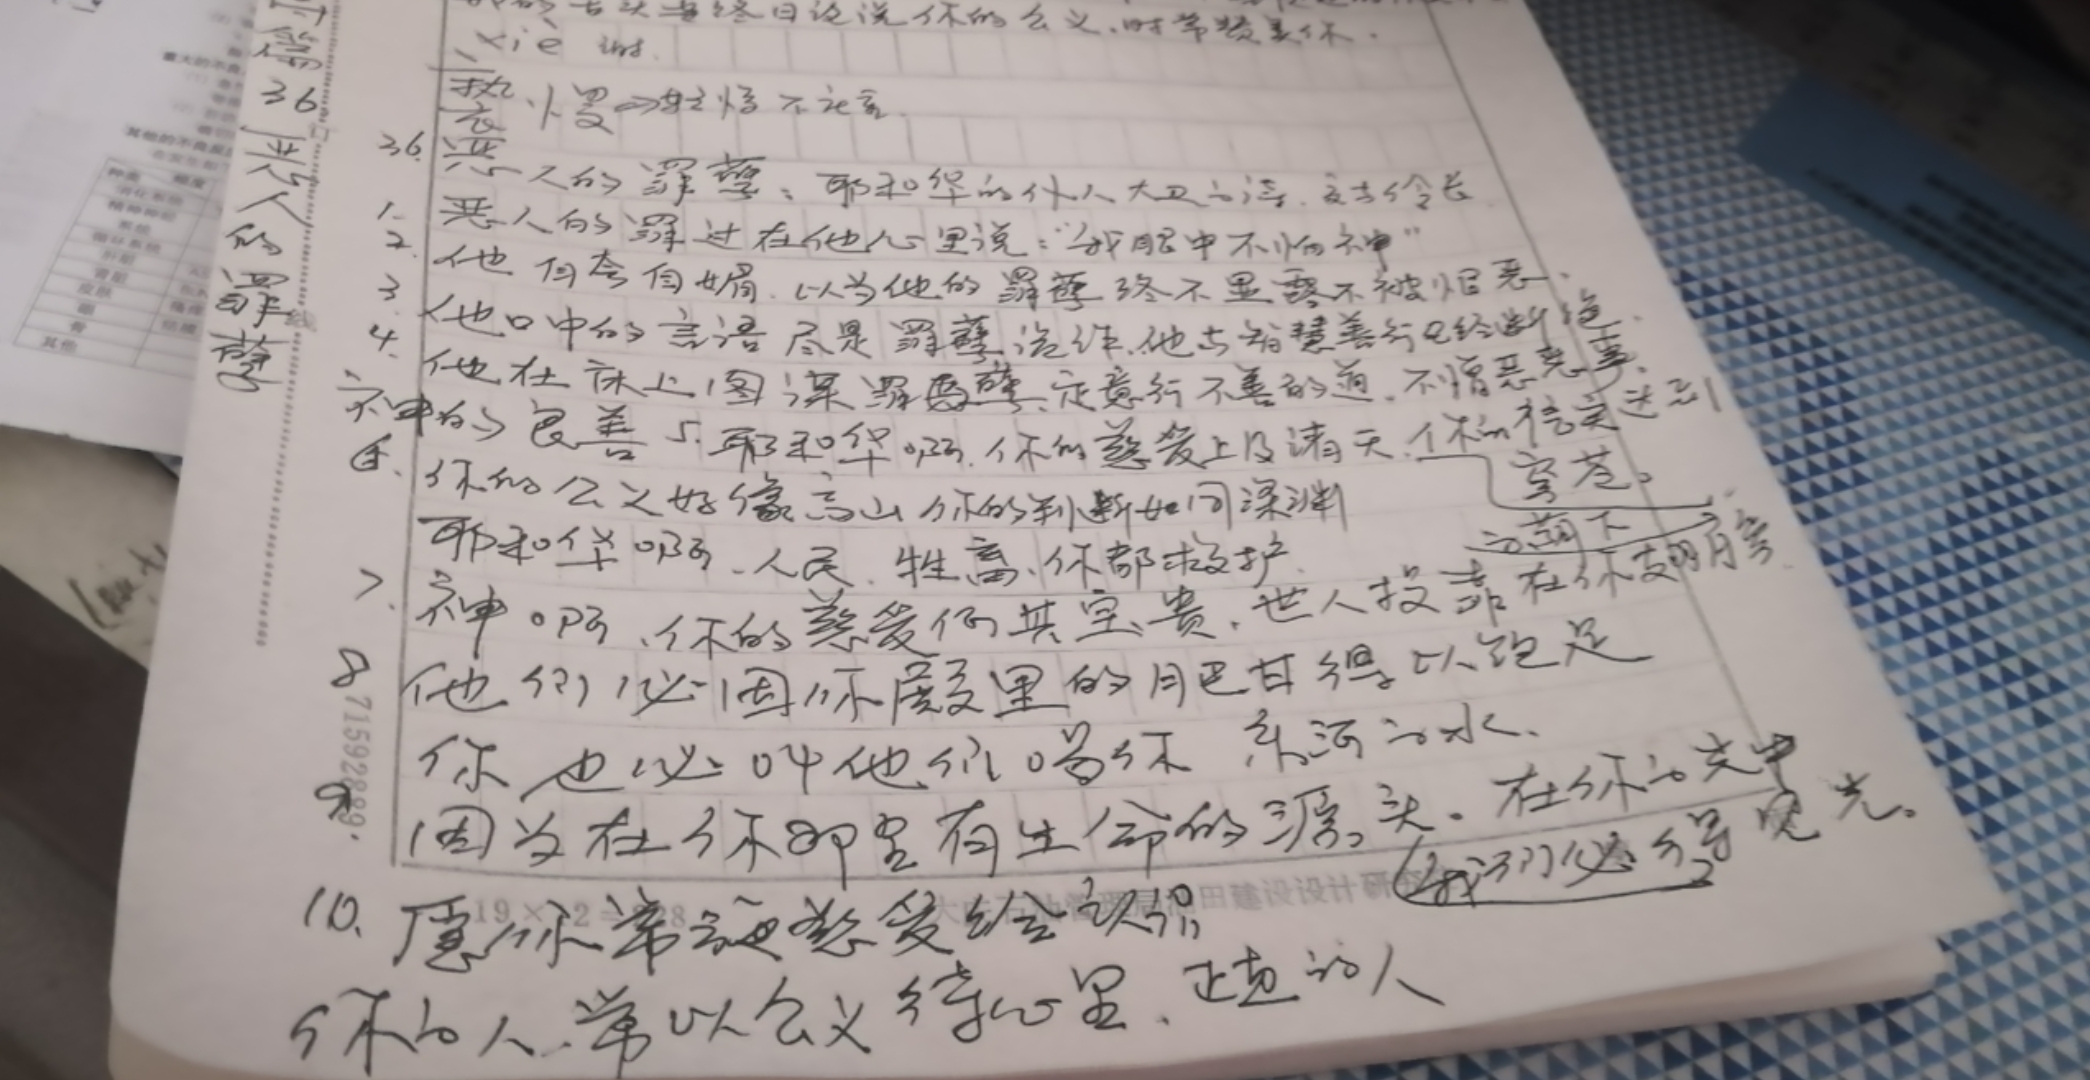 诗篇36恶人的罪孽
我的舌头要终日论说你的公义,时常赞美你.
xiè 谢.
亵慢⇒轻慢不
36. 恶人的罪孽、耶和华的仆人大卫的诗.交与伶长
1. 恶人的罪过在他心里说:“我眼中不怕神”
2. 他自夸自媚.以为他的罪孽终不显露不被恨恶.
3. 他口中的言语尽是罪孽诡诈.他与智慧善行已经断绝.
4. 他在床上图谋罪孽.定意行不善的道.不憎恶恶事.
神的良善 5. 耶和华啊.你的慈爱上及诸天.你的信实达到
穹苍。
6. 你的公义好像高山你的判断如同深渊
耶和华啊.人民.牲畜.你都救护.
的荫下
7. 神啊.你的慈爱何其宝贵.世人投靠在你翅膀
8 他们必因你殿里的肥甘得以饱足
你也必叫他们喝你 乐河的水.
9. 因为在你那里有生命的源头.在你的光中
我们必得见光。
19×12=228
10. 愿你常施慈爱给认识
你的人.常以公义待心里.正直的人
715928889
种类
其他